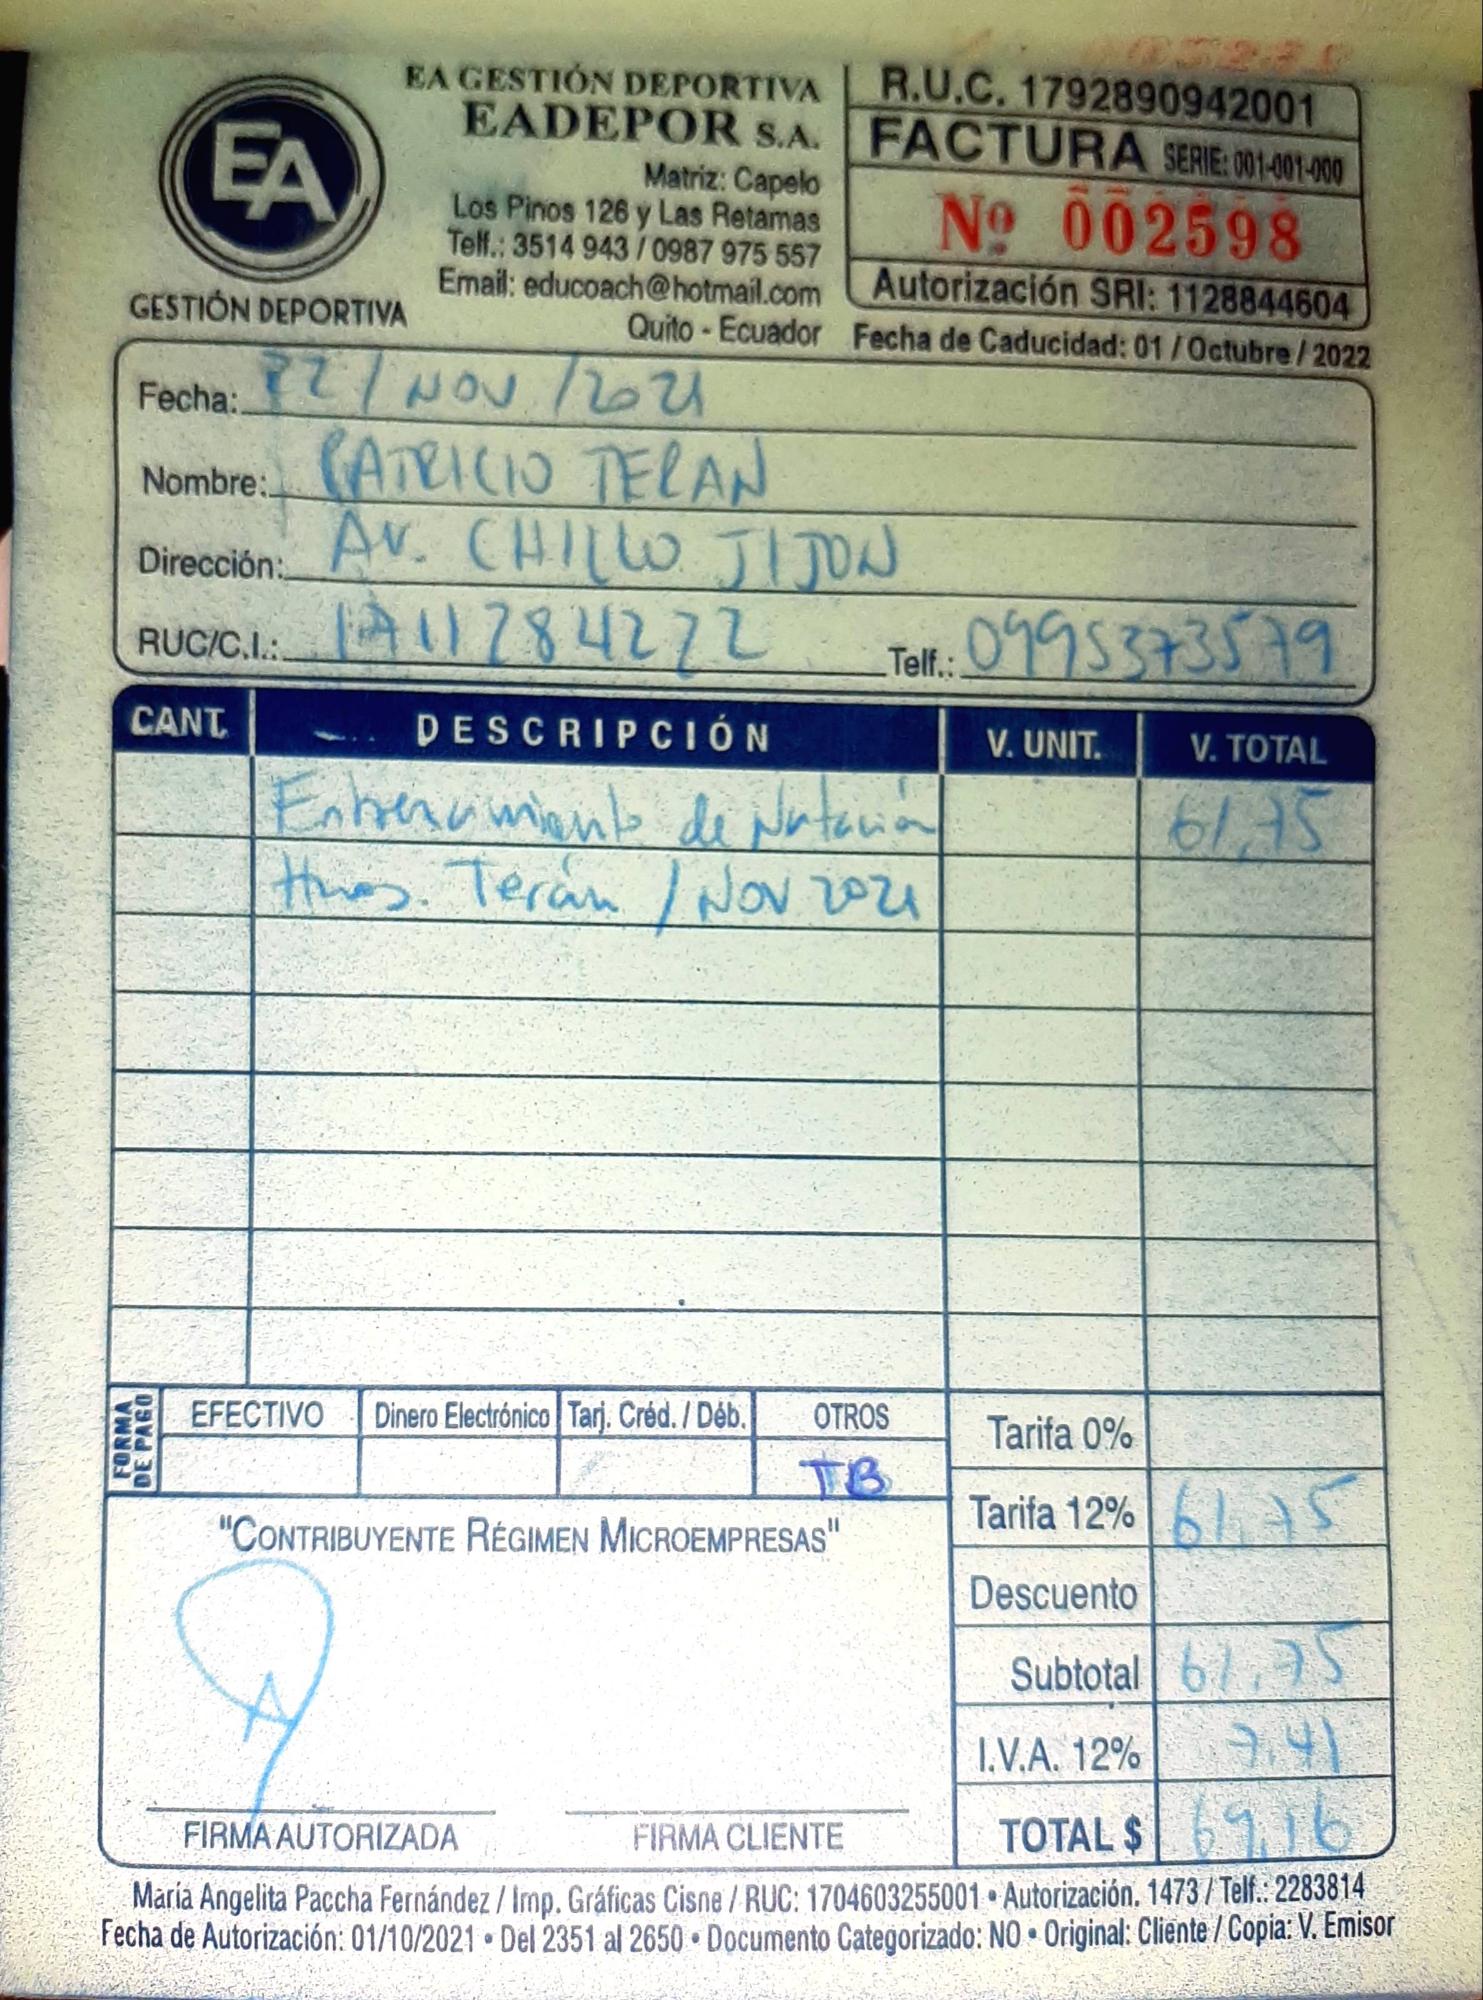 EA
GESTIÓN DEPORTIVA
EA GESTIÓN DEPORTIVA
EADEPOR S.A.
Matriz: Capelo
Los Pinos 126 y Las Retamas
Telf.: 3514 943 / 0987 975 557
Email: educoach@hotmail.com
Quito - Ecuador
R.U.C. 1792890942001
FACTURA SERIE: 001-001-000
Nº 002598
Autorización SRI: 1128844604
Fecha de Caducidad: 01 / Octubre / 2022
Fecha: 22 / NOV / 2021
Nombre: PATRICIO TERAN
Dirección: AV. CHILLO JIJON
RUC/C.I.: 1711284222 Telf.: 0995373579
CANT. DESCRIPCIÓN V. UNIT. V. TOTAL
Entrenamiento de Natación 61,75
Hnos. Terán / Nov 2021
FORMA DE PAGO
EFECTIVO Dinero Electrónico Tarj. Créd. / Déb. OTROS
TB
Tarifa 0%
Tarifa 12% 61,75
Descuento
Subtotal 61,75
I.V.A. 12% 7,41
TOTAL $ 69,16
"CONTRIBUYENTE RÉGIMEN MICROEMPRESAS"
FIRMA AUTORIZADA FIRMA CLIENTE
María Angelita Paccha Fernández / Imp. Gráficas Cisne / RUC: 1704603255001 • Autorización. 1473 / Telf.: 2283814
Fecha de Autorización: 01/10/2021 • Del 2351 al 2650 • Documento Categorizado: NO • Original: Cliente / Copia: V. Emisor